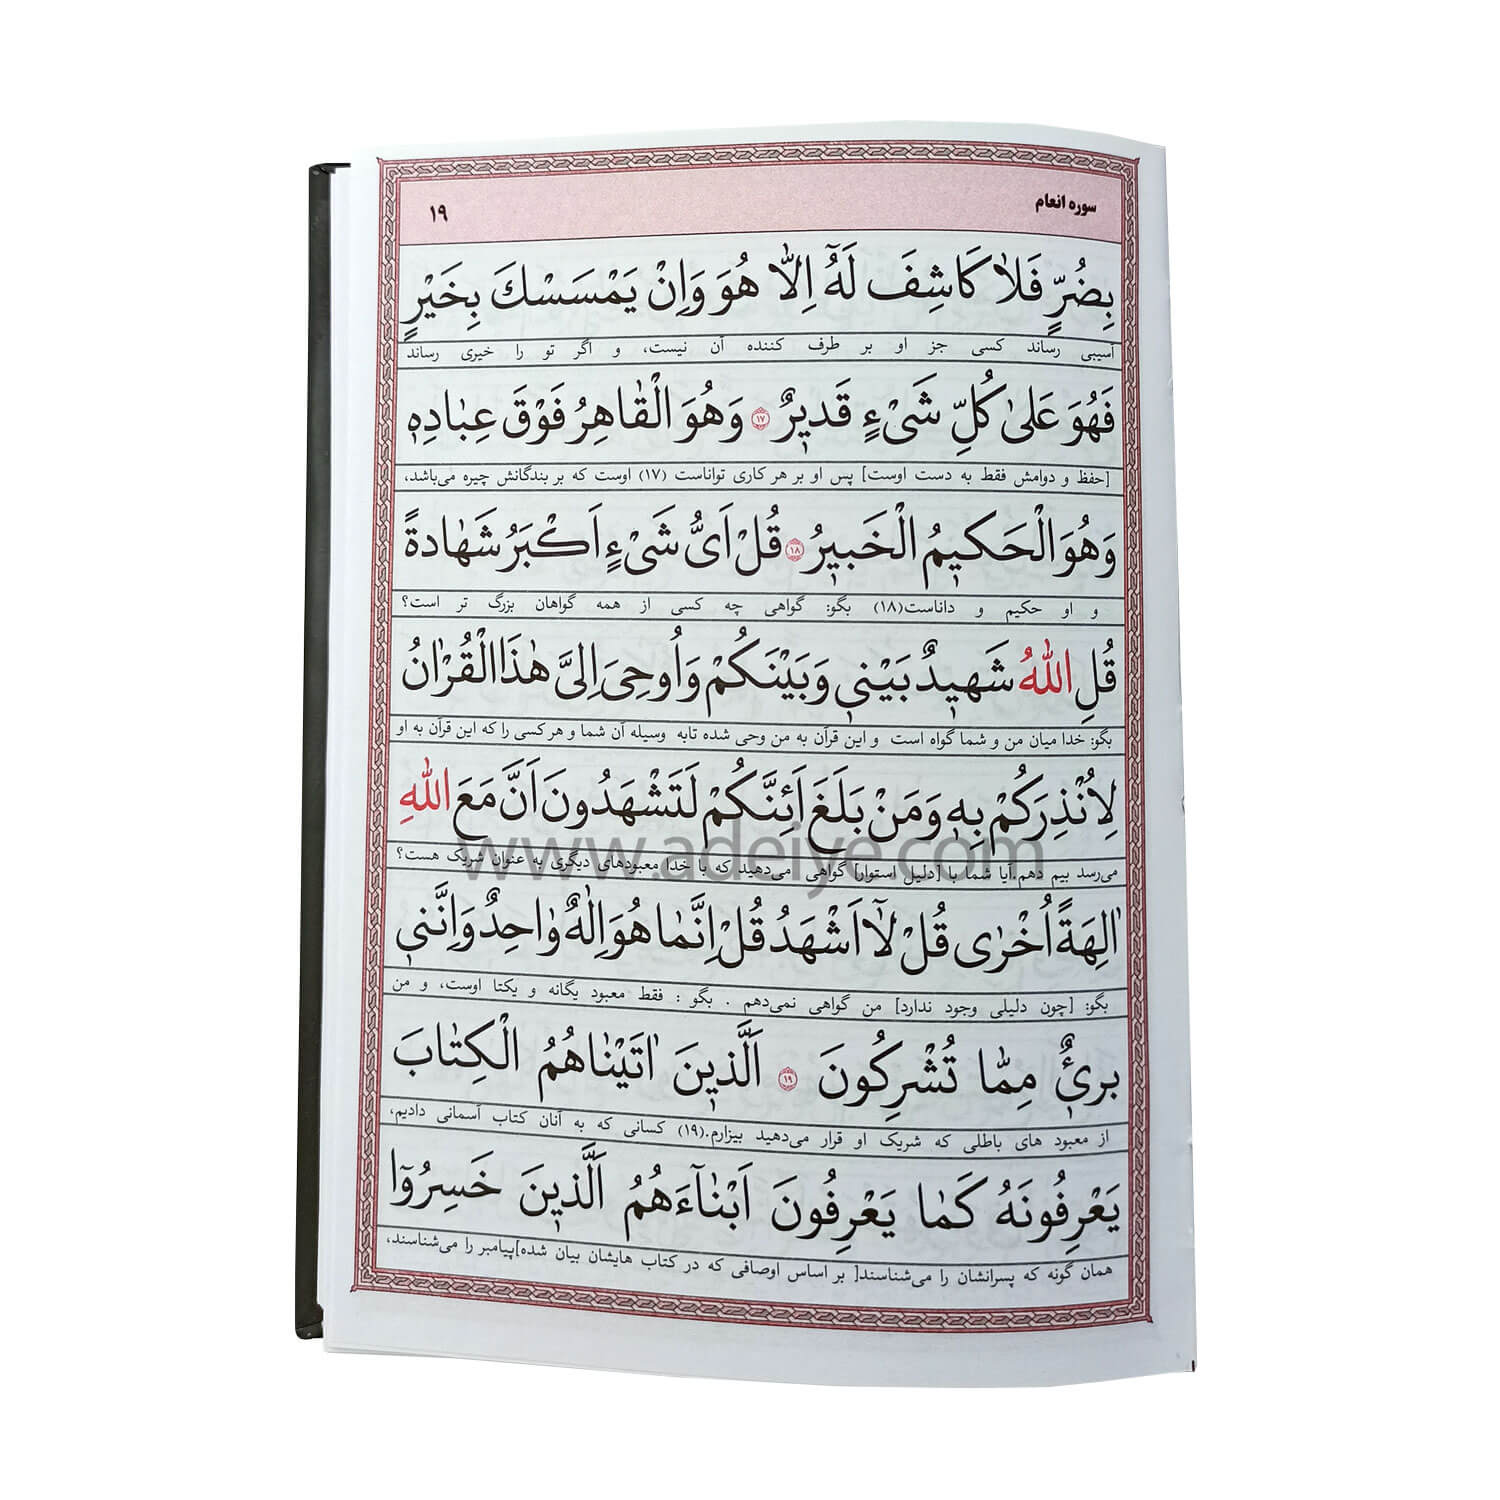 سوره انعام ۱۹
بِضُرٍّ فَلٰا كَاشِفَ لَهُٓ اِلّٰا هُوَ وَاِنْ يَمْسَسْكَ بِخَيْرٍ
آسیبی رساند کسی جز او بر طرف کننده آن نیست، و اگر تو را خیری رساند
فَهُوَ عَلىٰ كُلِّ شَىْءٍ قَديٖرٌ ۱۷ وَهُوَ الْقٰاهِرُ فَوْقَ عِبٰادِهٖ
[حفظ و دوامش فقط به دست اوست] پس او بر هر کاری تواناست (۱۷) اوست که بر بندگانش چیره می‌باشد،
وَهُوَ الْحَكيٖمُ الْخَبيٖرُ ۱۸ قُلْ اَىُّ شَىْءٍ اَكْبَرُ شَهٰادةً
و او حکیم و داناست(۱۸) بگو: گواهی چه کسی از همه گواهان بزرگ تر است؟
قُلِ اللّٰهُ شَهيٖدٌ بَيْنيٖ وَبَيْنَكُمْ وَاُوحِىَ اِلَىَّ هٰذَا الْقُرْاٰنُ
بگو: خدا میان من و شما گواه است و این قرآن به من وحی شده تابه وسیله آن شما و هر کسی را که این قرآن به او
لِاُنْذِرَكُمْ بِهٖ وَمَنْ بَلَغَ اَئِنَّكُمْ لَتَشْهَدُونَ اَنَّ مَعَ اللّٰهِ
www.adeiye.com
می‌رسد بیم دهم.آیا شما با [دلیل استوار] گواهی می‌دهید که با خدا معبودهای دیگری به عنوان شریک هست؟
اٰلِهَةً اُخْرٰى قُلْ لٰٓا اَشْهَدُ قُلْ اِنَّمٰا هُوَ اِلٰهٌ وٰاحِدٌ وَاِنَّنيٖ
بگو: [چون دلیلی وجود ندارد] من گواهی نمی‌دهم . بگو : فقط معبود یگانه و یکتا اوست، و من
بَرىٌٖٔ مِمّٰا تُشْرِكُونَ ۱۹ اَلَّذيٖنَ اٰتَيْنٰاهُمُ الْكِتٰابَ
از معبود های باطلی که شریک او قرار می‌دهید بیزارم.(۱۹) کسانی که به آنان کتاب آسمانی دادیم،
يَعْرِفُونَهُ كَمٰا يَعْرِفُونَ اَبْنٰٓاءَهُمُ اَلَّذيٖنَ خَسِرُوٓا
همان گونه که پسرانشان را می‌شناسند[ بر اساس اوصافی که در کتاب هایشان بیان شده]پیامبر را می‌شناسند،